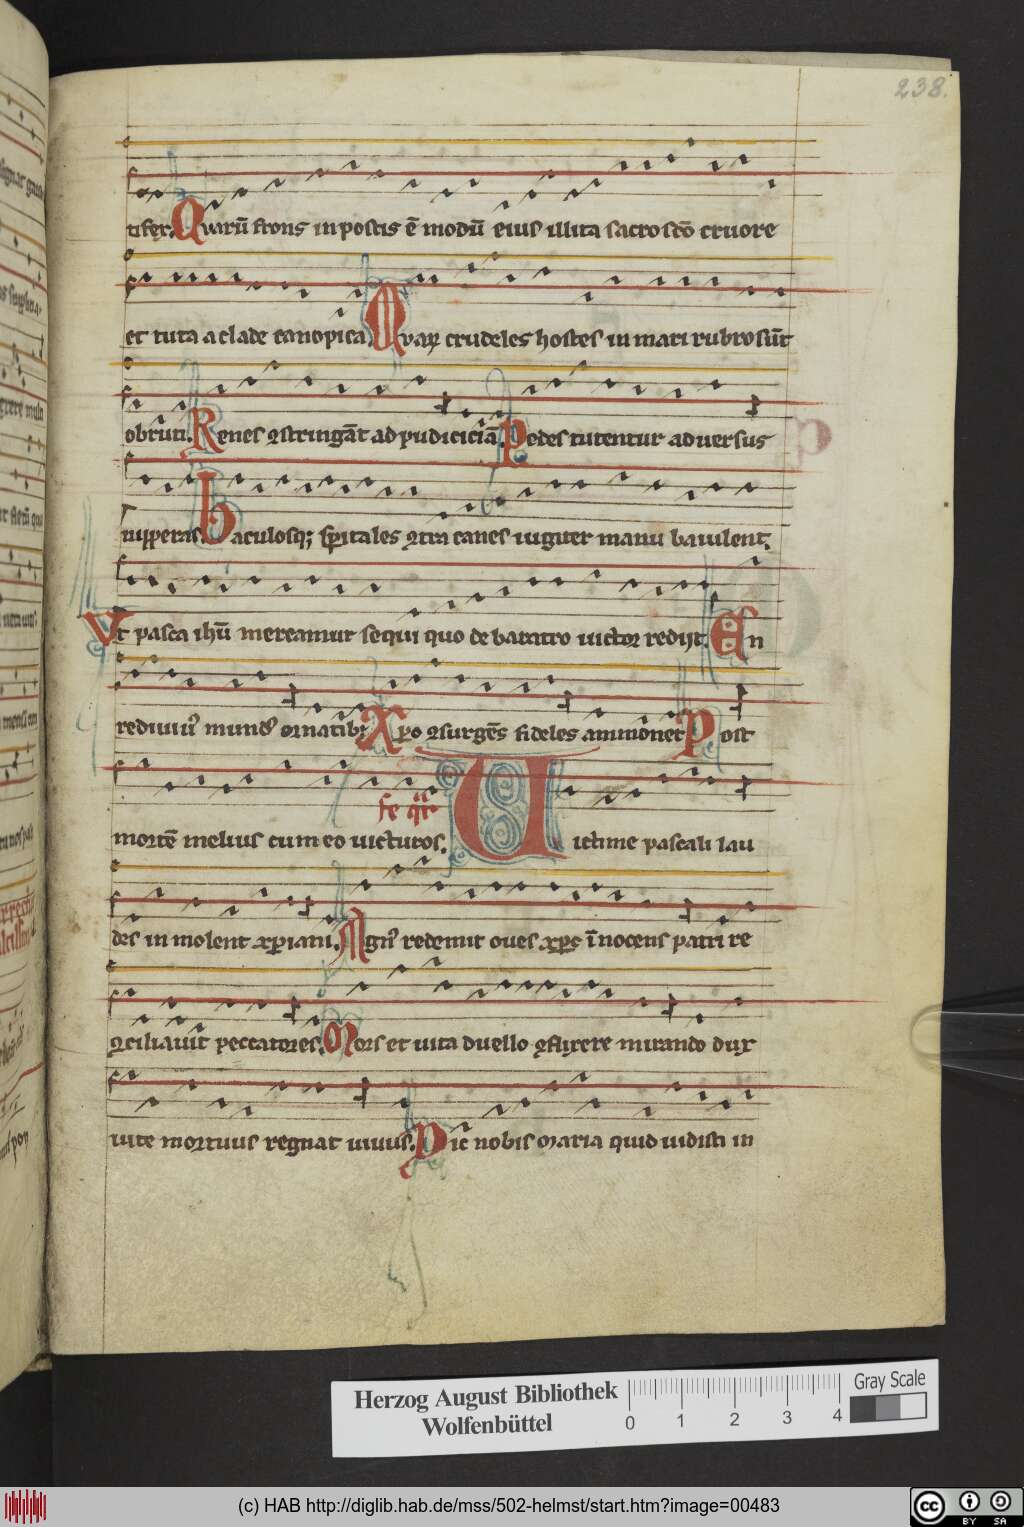 238.
tifer. Quarū frons in postis ē modū eius illita sacro scō cruore
et tuta a clade canopica. Quaꝝ crudeles hostes in mari rubro sūt
obruti. Renes ꝯstringāt ad pudiciciā. Pedes tutentur ad uersus
uiperas. baculosqꝫ spiritales ꝯtra canes iugiter manu baiulent.
Vt pasca ihū mereamur sequi quo de baratro uictor redijt. En
rediuiuꝰ mundꝰ ornatibꝫ Xpo ꝯsurgēs fideles ammonet Post
mortē melius cum eo uicturos. Victime pascali lau
des in molent xpiani. Agnꝰ redemit oues xpc īnocens patri re
ꝯciliauit peccatores. Mors et uita duello ꝯflixere mirando dux
uite mortuus regnat uiuus. Dic nobis maria quid uidisti in
Herzog August Bibliothek
Wolfenbüttel
0 1 2 3 4
Gray Scale
(c) HAB http://diglib.hab.de/mss/502-helmst/start.htm?image=00483
cc BY SA